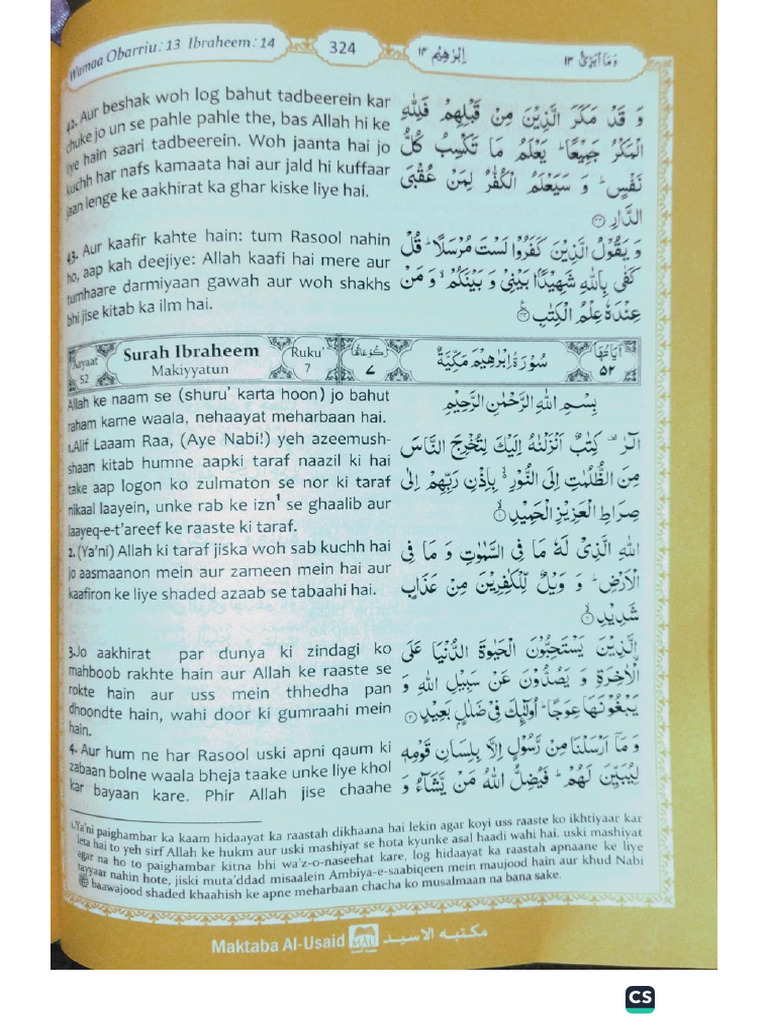 Wamaa Obarriu: 13 Ibraheem: 14
324
اِبْرٰهِيْم ١٤
وَمَآ اُبَرِّئُ ١٣
42. Aur beshak woh log bahut tadbeerein kar
chuke jo un se pahle pahle the, bas Allah hi ke
liye hain saari tadbeerein. Woh jaanta hai jo
kuchh har nafs kamaata hai aur jald hi kuffaar
jaan lenge ke aakhirat ka ghar kiske liye hai.
وَ قَدْ مَكَرَ الَّذِيْنَ مِنْ قَبْلِهِمْ فَلِلّٰهِ
الْمَكْرُ جَمِيْعًا ؕ يَعْلَمُ مَا تَكْسِبُ كُلُّ
نَفْسٍ ؕ وَ سَيَعْلَمُ الْكُفّٰرُ لِمَنْ عُقْبَى
الدَّارِ ۝٤٢
43. Aur kaafir kahte hain: tum Rasool nahin
ho, aap kah deejiye: Allah kaafi hai mere aur
tumhaare darmiyaan gawah aur woh shakhs
bhi jise kitab ka ilm hai.
وَ يَقُوْلُ الَّذِيْنَ كَفَرُوْا لَسْتَ مُرْسَلًا ؕ قُلْ
كَفٰى بِاللّٰهِ شَهِيْدًۢا بَيْنِيْ وَ بَيْنَكُمْ ۙ وَ مَنْ
عِنْدَهٗ عِلْمُ الْكِتٰبِ ۝٤٣
Aayaat 52
Surah Ibraheem
Makiyyatun
Ruku' 7
رُكُوْعَاتُهَا ٧
سُوْرَةُ اِبْرٰهِيْمَ مَكِّيَّةٌ
اٰيَاتُهَا ٥٢
Allah ke naam se (shuru' karta hoon) jo bahut
raham karne waala, nehaayat meharbaan hai.
بِسْمِ اللّٰهِ الرَّحْمٰنِ الرَّحِيْمِ
1.Alif Laaam Raa, (Aye Nabi!) yeh azeemush-
shaan kitab humne aapki taraf naazil ki hai
take aap logon ko zulmaton se nor ki taraf
nikaal laayein, unke rab ke izn¹ se ghaalib aur
laayeq-e-t'areef ke raaste ki taraf.
الٓرٰ ۫ كِتٰبٌ اَنْزَلْنٰهُ اِلَيْكَ لِتُخْرِجَ النَّاسَ
مِنَ الظُّلُمٰتِ اِلَى النُّوْرِ ۙ بِاِذْنِ رَبِّهِمْ اِلٰى
صِرَاطِ الْعَزِيْزِ الْحَمِيْدِ ۝١
2. (Ya'ni) Allah ki taraf jiska woh sab kuchh hai
jo aasmaanon mein aur zameen mein hai aur
kaafiron ke liye shaded azaab se tabaahi hai.
اللّٰهِ الَّذِيْ لَهٗ مَا فِي السَّمٰوٰتِ وَ مَا فِي
الْاَرْضِ ؕ وَ وَيْلٌ لِّلْكٰفِرِيْنَ مِنْ عَذَابٍ
شَدِيْدِ ۝٢
3.Jo aakhirat par dunya ki zindagi ko
mahboob rakhte hain aur Allah ke raaste se
rokte hain aur uss mein thhedha pan
dhoondte hain, wahi door ki gumraahi mein
hain.
الَّذِيْنَ يَسْتَحِبُّوْنَ الْحَيٰوةَ الدُّنْيَا عَلَى
الْاٰخِرَةِ وَ يَصُدُّوْنَ عَنْ سَبِيْلِ اللّٰهِ وَ
يَبْغُوْنَهَا عِوَجًا ؕ اُولٰٓئِكَ فِيْ ضَلٰلٍۭ بَعِيْدٍ ۝٣
4. Aur hum ne har Rasool uski apni qaum ki
zabaan bolne waala bheja taake unke liye khol
kar bayaan kare. Phir Allah jise chaahe
وَ مَاۤ اَرْسَلْنَا مِنْ رَّسُوْلٍ اِلَّا بِلِسَانِ قَوْمِهٖ
لِيُبَيِّنَ لَهُمْ ؕ فَيُضِلُّ اللّٰهُ مَنْ يَّشَآءُ وَ
1.Ya'ni paighambar ka kaam hidaayat ka raastah dikhaana hai lekin agar koyi uss raaste ko ikhtiyaar kar
leta hai to yeh sirf Allah ke hukm aur uski mashiyat se hota kyunke asal haadi wahi hai. uski mashiyat
agar na ho to paighambar kitna bhi wa'z-o-naseehat kare, log hidaayat ka raastah apnaane ke liye
tayyaar nahin hote, jiski muta'ddad misaalein Ambiya-e-saabiqeen mein maujood hain aur khud Nabi
ﷺ baawajood shaded khaahish ke apne meharbaan chacha ko musalmaan na bana sake.
Maktaba Al-Usaid
MAU
مكتبه الاسيد
CS